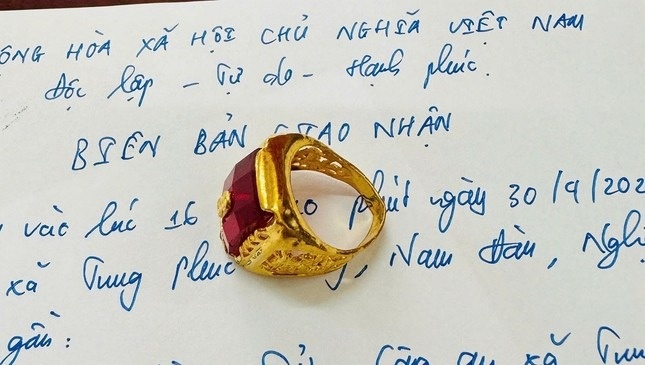 ỘNG HÒA XÃ HỘI CHỦ NGHĨA VIỆT NAM
Độc lập - Tự do - Hạnh phúc.
BIÊN BẢN GIAO NHẬN
vào lúc 16 phút ngày 30/9/202
xã Trung Phúc Nam Đàn, Nghệ
gồm:
Công an xã Trun